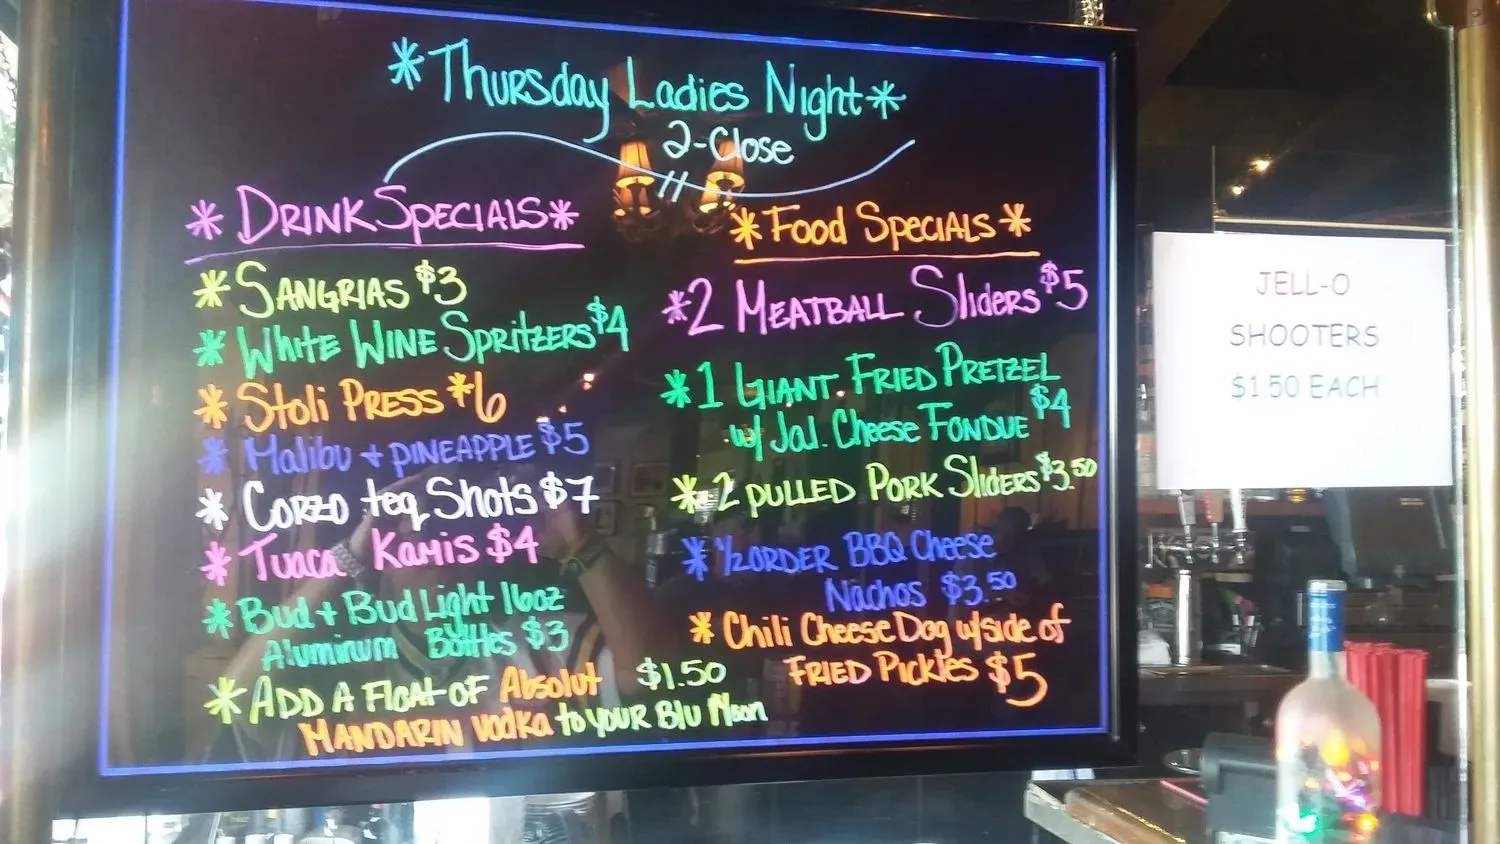 *Thursday Ladies Night*
2-Close
*Drink Specials*
*Sangrias $3
*White Wine Spritzers $4
*Stoli Press *6
*Malibu + Pineapple $5
*Corzo teq Shots $7
*Tuaca Kamis $4
*Bud + Bud Light 16oz
Aluminum Bottles $3
*Add a Float of Absolut $1.50
Mandarin Vodka to your Blu Moon
*Food Specials*
*2 Meatball Sliders $5
*1 Giant Fried Pretzel
w/ Jal. Cheese Fondue $4
*2 Pulled Pork Sliders $3.50
*1/2 Order BBQ Cheese
Nachos $3.50
*Chili Cheese Dog w/side of
Fried Pickles $5
JELL-O
SHOOTERS
$1.50 EACH